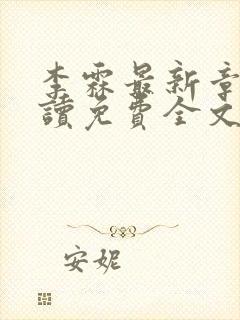 李霖最新章
讀免費全文
安妮